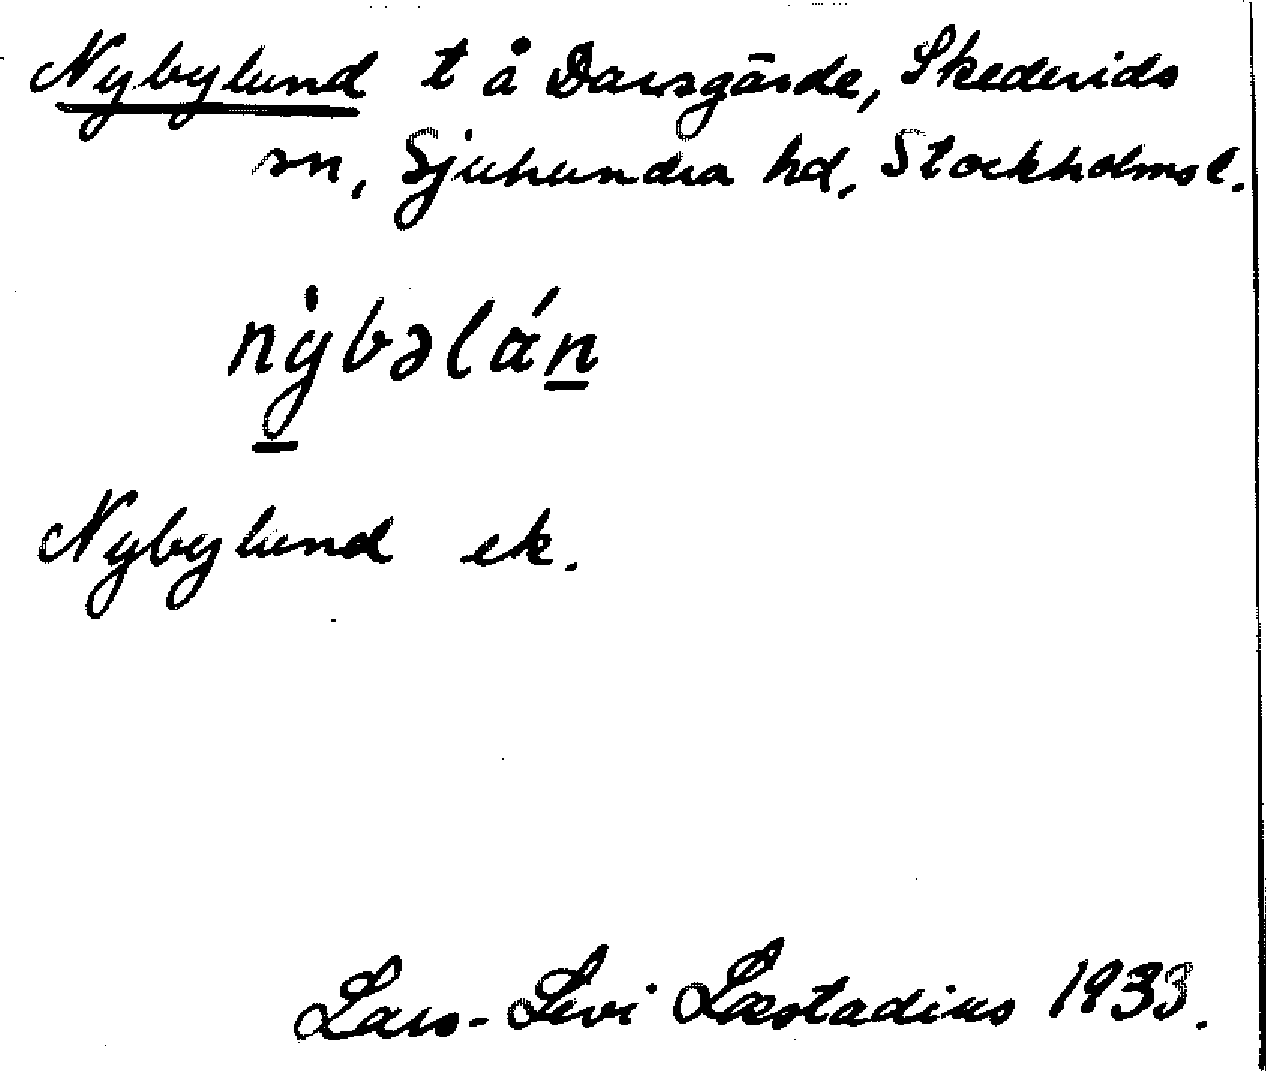 Nybylund t å Darsgärde, Skederids
sn, Sjuhundra hd, Stockholms l.
nẏ̱bəlán̲
Nybylund ek.
Lars-Levi Læstadius 1933.